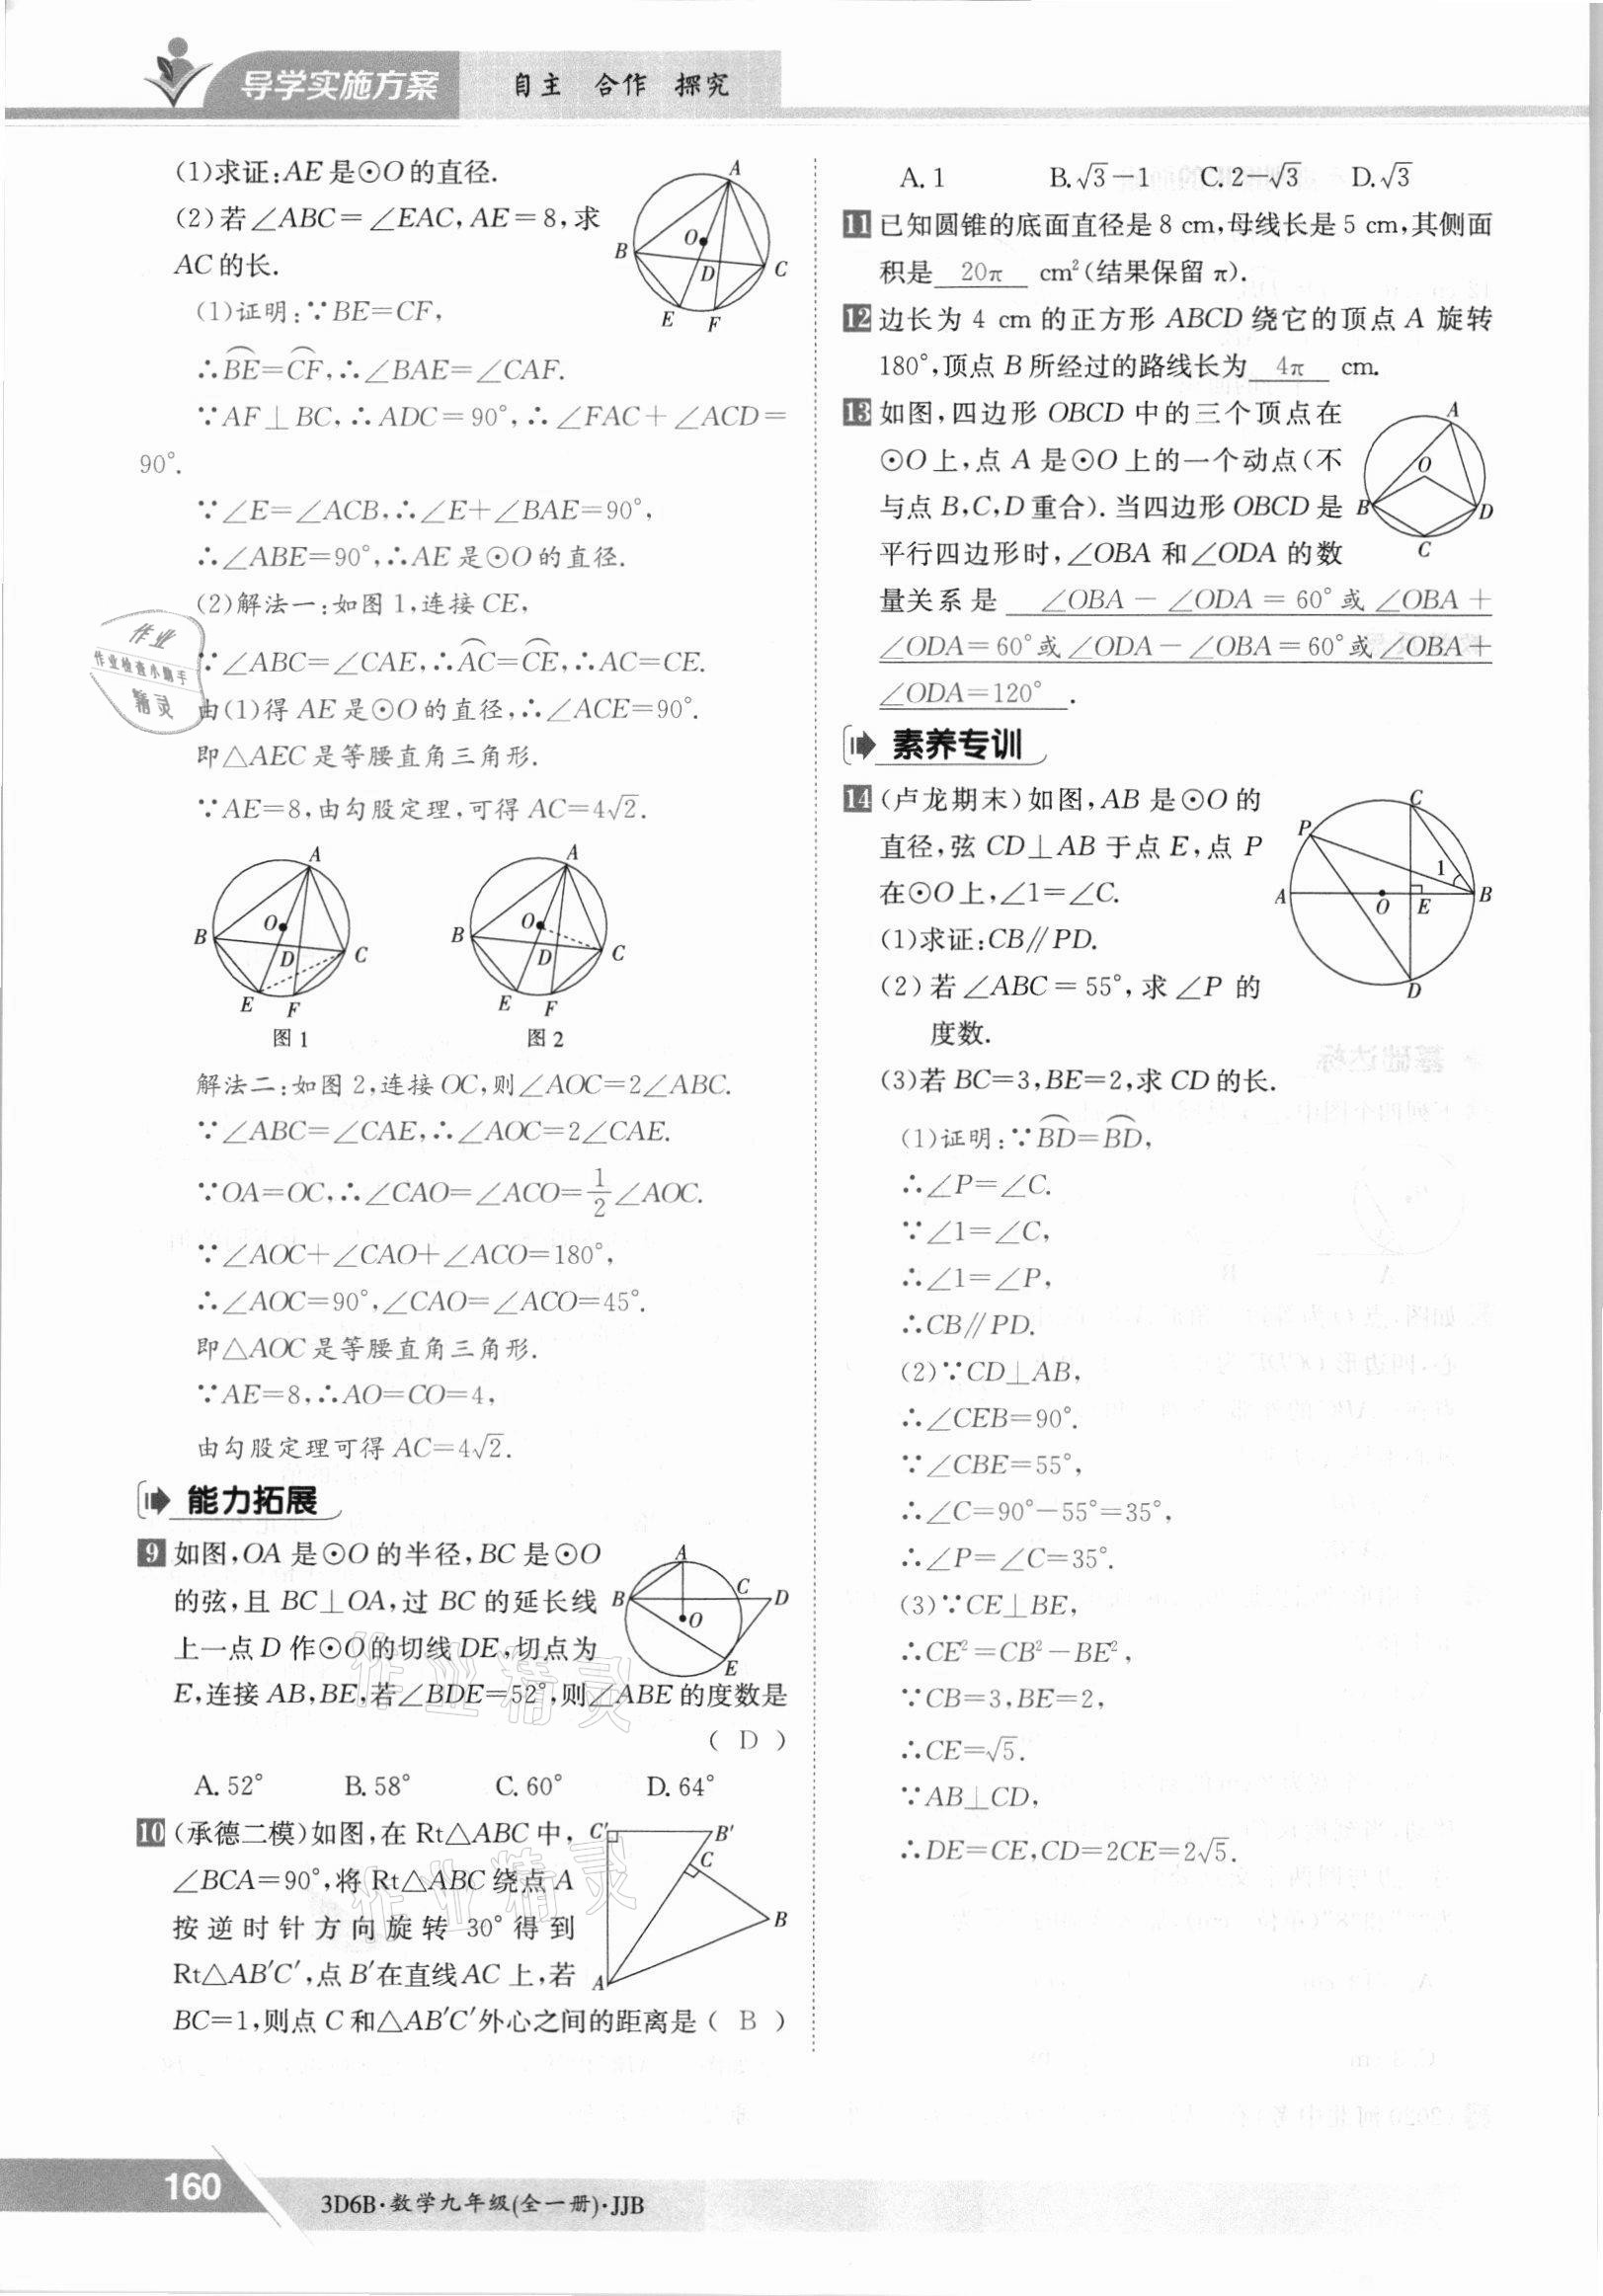 导学实施方案 自主 合作 探究
(1)求证:AE是⊙O的直径.
(2)若∠ABC=∠EAC,AE=8,求
AC的长.
A
B
O
D
C
E
F
(1)证明:∵BE=CF,
∴BE=CF,∴∠BAE=∠CAF.
∵AF⊥BC,∴ADC=90°,∴∠FAC+∠ACD=
90°.
∵∠E=∠ACB,∴∠E+∠BAE=90°,
∴∠ABE=90°,∴AE是⊙O的直径.
(2)解法一:如图1,连接CE,
∵∠ABC=∠CAE,∴AC=CE,∴AC=CE.
由(1)得AE是⊙O的直径,∴∠ACE=90°.
即△AEC是等腰直角三角形.
∵AE=8,由勾股定理,可得AC=4√2.
A
B
O
D
C
E
F
图1
A
B
O
D
C
E
F
图2
解法二:如图2,连接OC,则∠AOC=2∠ABC.
∵∠ABC=∠CAE,∴∠AOC=2∠CAE.
∵OA=OC,∴∠CAO=∠ACO=1/2∠AOC.
∵∠AOC+∠CAO+∠ACO=180°,
∴∠AOC=90°,∠CAO=∠ACO=45°.
即△AOC是等腰直角三角形.
∵AE=8,∴AO=CO=4,
由勾股定理可得AC=4√2.
能力拓展
9 如图,OA是⊙O的半径,BC是⊙O
的弦,且BC⊥OA,过BC的延长线
上一点D作⊙O的切线DE,切点为
E,连接AB,BE,若∠BDE=52°,则∠ABE的度数是
( D )
A
B
C
D
O
E
A. 52° B. 58° C. 60° D. 64°
10 (承德二模)如图,在Rt△ABC中,
∠BCA=90°,将Rt△ABC绕点A
按逆时针方向旋转30°得到
Rt△AB′C′,点B′在直线AC上,若
BC=1,则点C和△AB′C′外心之间的距离是( B )
C′
B′
C
B
A
A. 1 B. √3-1 C. 2-√3 D. √3
11 已知圆锥的底面直径是8 cm,母线长是5 cm,其侧面
积是 20π cm²(结果保留π).
12 边长为4 cm的正方形ABCD绕它的顶点A旋转
180°,顶点B所经过的路线长为 4π cm.
13 如图,四边形OBCD中的三个顶点在
⊙O上,点A是⊙O上的一个动点(不
与点B,C,D重合).当四边形OBCD是
平行四边形时,∠OBA和∠ODA的数
量关系是 ∠OBA-∠ODA=60°或∠OBA+
∠ODA=60°或∠ODA-∠OBA=60°或∠OBA+
∠ODA=120° .
A
O
B
D
C
素养专训
14 (卢龙期末)如图,AB是⊙O的
直径,弦CD⊥AB于点E,点P
在⊙O上,∠1=∠C.
(1)求证:CB∥PD.
(2)若∠ABC=55°,求∠P的
度数.
(3)若BC=3,BE=2,求CD的长.
C
P
1
A
O
E
B
D
(1)证明:∵BD=BD,
∴∠P=∠C.
∵∠1=∠C,
∴∠1=∠P,
∴CB∥PD.
(2)∵CD⊥AB,
∴∠CEB=90°.
∵∠CBE=55°,
∴∠C=90°-55°=35°,
∴∠P=∠C=35°.
(3)∵CE⊥BE,
∴CE²=CB²-BE²,
∵CB=3,BE=2,
∴CE=√5.
∵AB⊥CD,
∴DE=CE,CD=2CE=2√5.
作业
作业检查小助手
精灵
作业精灵
作业精灵
160
3D6B·数学九年级(全一册)·JJB